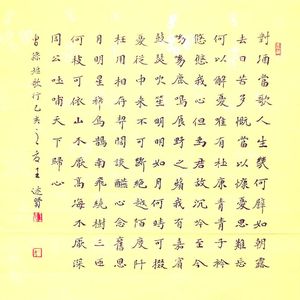 對酒當歌人生幾何譬如朝露
去日苦多慨當以慷憂思難忘
何以解憂唯有杜康青青子衿
悠悠我心但為君故沉吟至今
呦呦鹿鳴食野之蘋我有嘉賓
鼓瑟吹笙明明如月何時可掇
憂從中來不可斷絕越陌度阡
枉用相存契闊談讌心念舊恩
月明星稀烏鵲南飛繞樹三匝
何枝可依山不厭高海不厭深
周公吐哺天下歸心
曹操短歌行